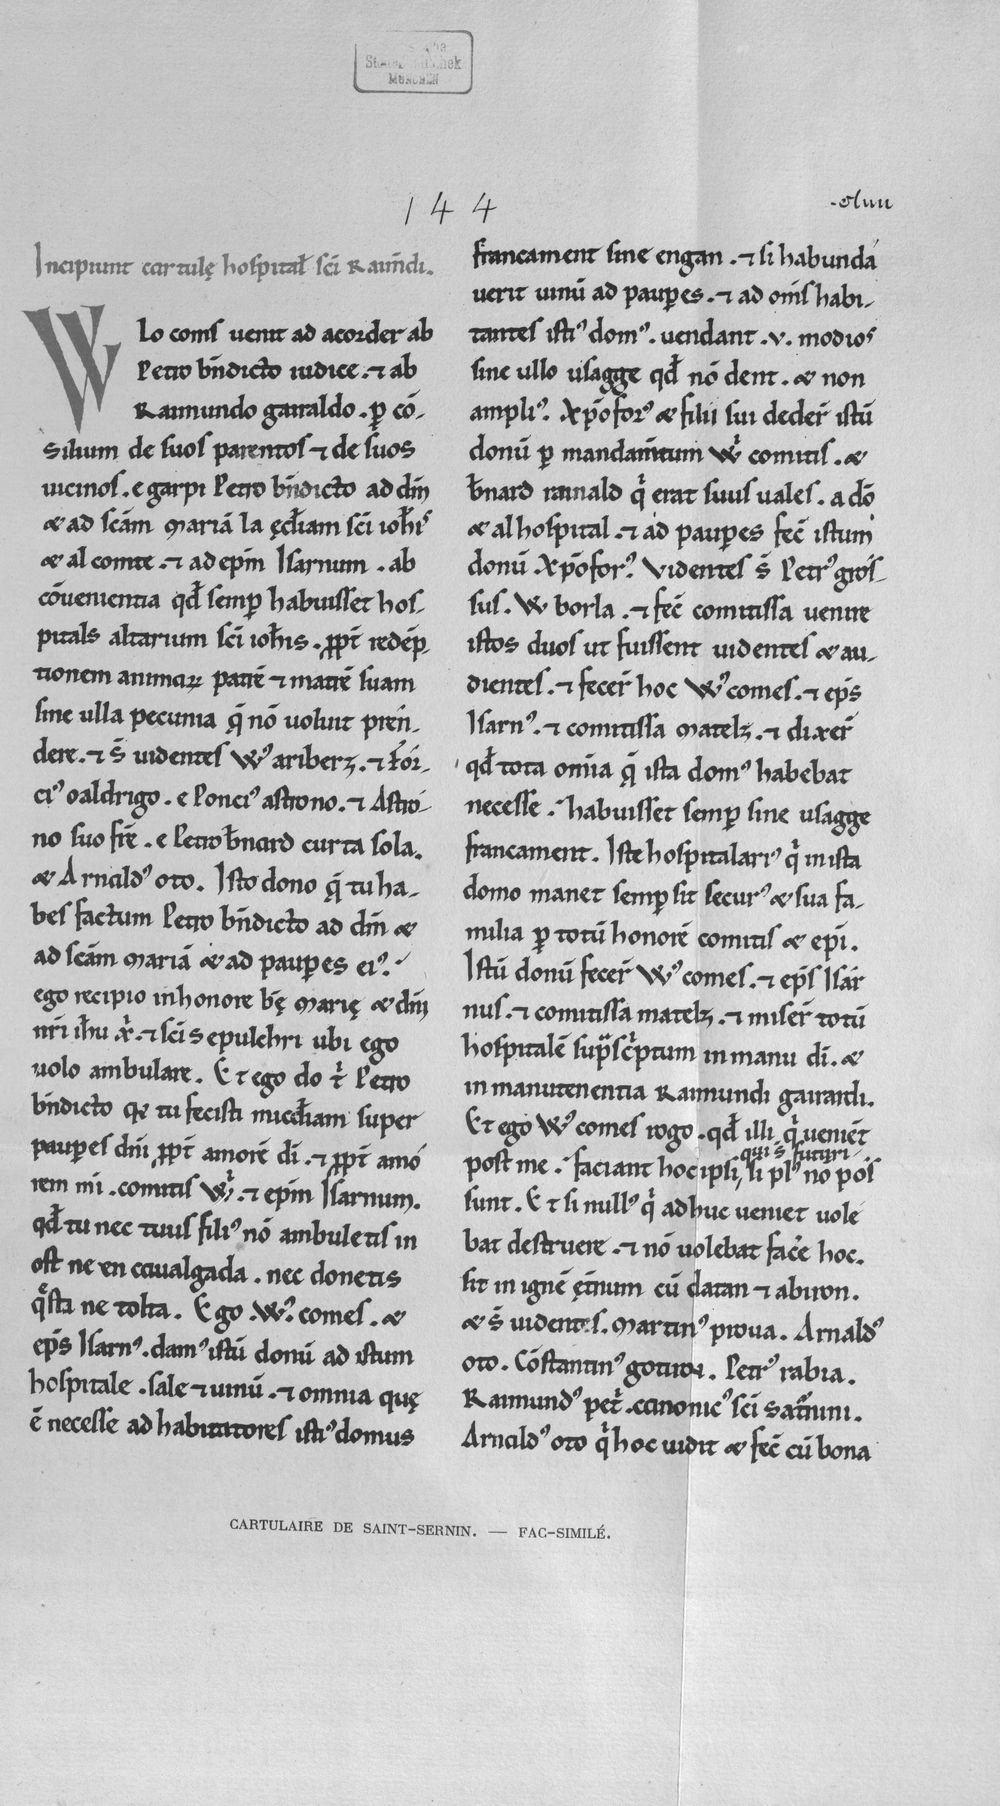 Staatsbibliothek
MÜNCHEN
144
Incipiunt cartulę hospitał sc̄i Raim̄di.
W
Lo coms uenit ad acorder ab
Petro bn̄dicto iudice. ⁊ ab
Raimundo garraldo. ꝑ cō-
silium de suos parentos ⁊ de suos
uicinos. e garpi Petro bn̄dicto ad dm̄
& ad scām Mariā la ęcłiam sc̄i ioħis
& al comte. ⁊ ad epm̄ Isarnum. ab
cōuenientia qđ semꝑ habuisset hos-
pitals altarium sc̄i ioħis. ꝓpt̄ redēp-
tionem animaꝝ patrē ⁊ matrē suam
sine ulla pecunia q̄ nō uoluit pren̄-
dere. ⁊ s̄ uidentes Wꝰ ariberꝫ. ⁊
ciꝰ oaldrigo. e Ponciꝰ astrono. ⁊ Astro-
no suo frē. e Petro bn̄ard curta sola.
& Arnaldꝰ oto. Isto dono q̄ tu ha-
bes factum Petro bn̄dicto ad dm̄ &
ad scām Mariā & ad pauꝑes eiꝰ.
ego recipio in honore bę̄ Marię & dn̄i
nr̄i ih̄u xp̄i. ⁊ sc̄i sepulchri ubi ego
uolo ambulare. Et ego do t̄ Petro
bn̄dicto qe tu fecisti mic̄diam super
pauꝑes dn̄i ꝓpt̄ amorē di. ⁊ ꝓpt̄ amō
rem mi. comitis W. ⁊ epm̄ Isarnum.
qđ tu nec tuus filiꝰ nō ambuletis in
ost ne en caualgada. nec donetis
q̄sta ne tolta. Ego .Wꝰ. comes. &
ep̄s Isarnꝰ. damꝰ istū donū ad istum
hospitale. sale ⁊ uinū. ⁊ omnia quę
ē necesse ad habitatores istiꝰ domus
francament sine engan. ⁊ si habunda
uerit uinū ad pauꝑes. ⁊ ad om̄s habi-
tantes istiꝰ domꝰ. uendant .v. modios
sine ullo usagge qđ nō dent. & non
ampliꝰ. Xp̄oforꝰ & filii sui deder̄ istū
donū ꝑ mandam̄tum W comitis. &
bn̄ard rainald q̄ erat suus uales. a dō
& al hospital. ⁊ ad pauꝑes fec̄ istum
donū Xp̄oforꝰ. Videntes s̄ Petrꝰ gros-
sus. W borla. ⁊ fec̄ comitissa uenire
istos duos ut fuissent uidentes & au-
dientes. ⁊ fecer̄ hoc Wꝰ comes. ⁊ ep̄s
Isarnꝰ. ⁊ comitissa matelꝫ. ⁊ dixer̄
qđ tota omīa q̄ ista domꝰ habebat
necesse. habuisset semꝑ sine usagge
francament. Iste hospitalariꝰ q̄ in ista
domo manet semꝑ sit securꝰ & sua fa-
milia ꝑ totū honorē comitis & epi.
Istū donū fecer̄ Wꝰ comes. ⁊ ep̄s Isar-
nus. ⁊ comitissa matelꝫ. ⁊ miser̄ totū
hospitalē sup̄sc̄ptum in manu di. &
in manutenentia Raimundi gairardi.
Et ego Wꝰ comes rogo. qđ illi q̄ uenēt
qui s̄ futuri
post me. faciant hoc ipsi, si plꝰ nō pos
sunt. Et si nullꝰ q̄ adhuc ueniet uole
bat destruere. ⁊ nō uolebat fac̄e hoc.
sit in ignē ęt̄num cū datan ⁊ abiron.
& s̄ uidentes. Martinꝰ proua. Arnaldꝰ
oto. Cōstantinꝰ gotiron. Petrꝰ rabia.
Raimundꝰ pet̄. canonicꝰ sc̄i Sat̄nini.
Arnaldꝰ oto q̄ hoc uidit & fec̄ cū bona
CARTULAIRE DE SAINT-SERNIN. — FAC-SIMILÉ.